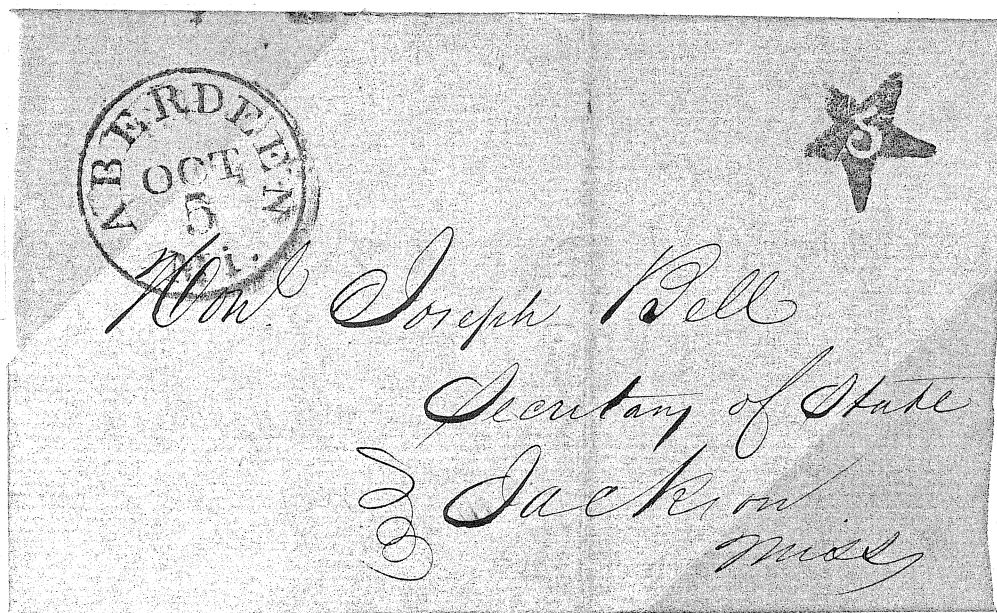 ABERDEEN
OCT
5
Mi.
5
Honl Joseph Bell
Secretary of State
Jackson
Miss